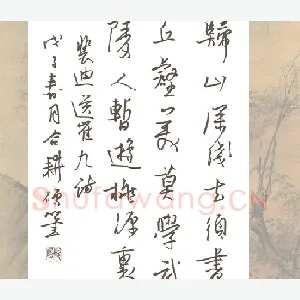 歸山深淺去須盡
丘壑美莫學武
陵人暫遊桃源裏
裴迪送崔九詩
戊子春月合耕
Shufawang.CN